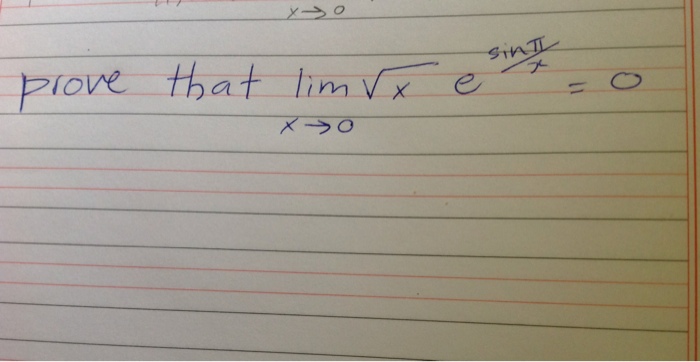 x→0
prove that lim √x e^(sin π/x) = 0
x→0